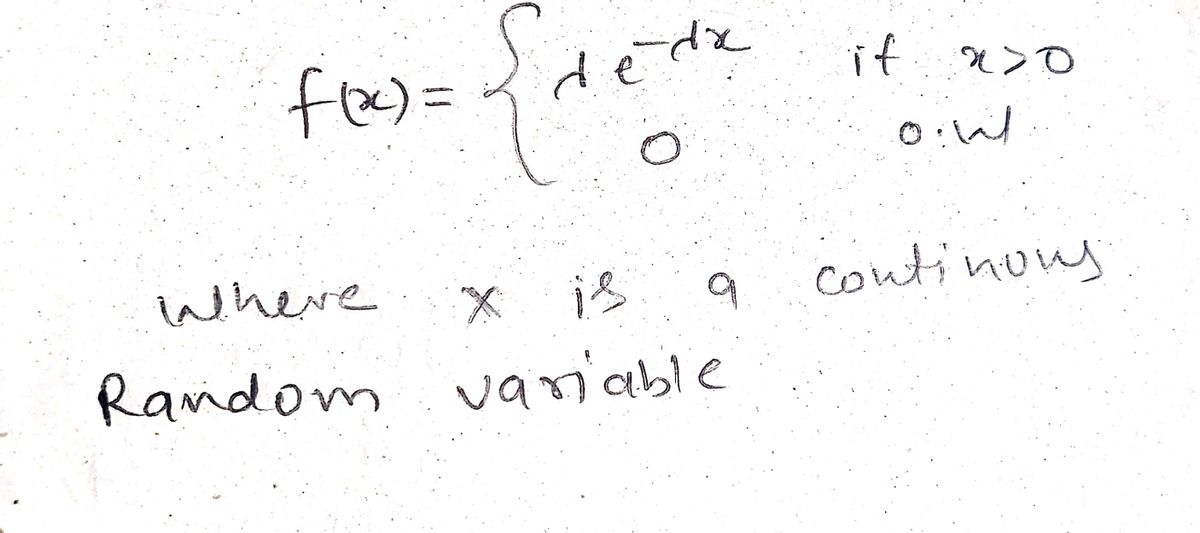 f(x) = { λe^-λx if x>0
0 o.w
where x is a continous
Random variable